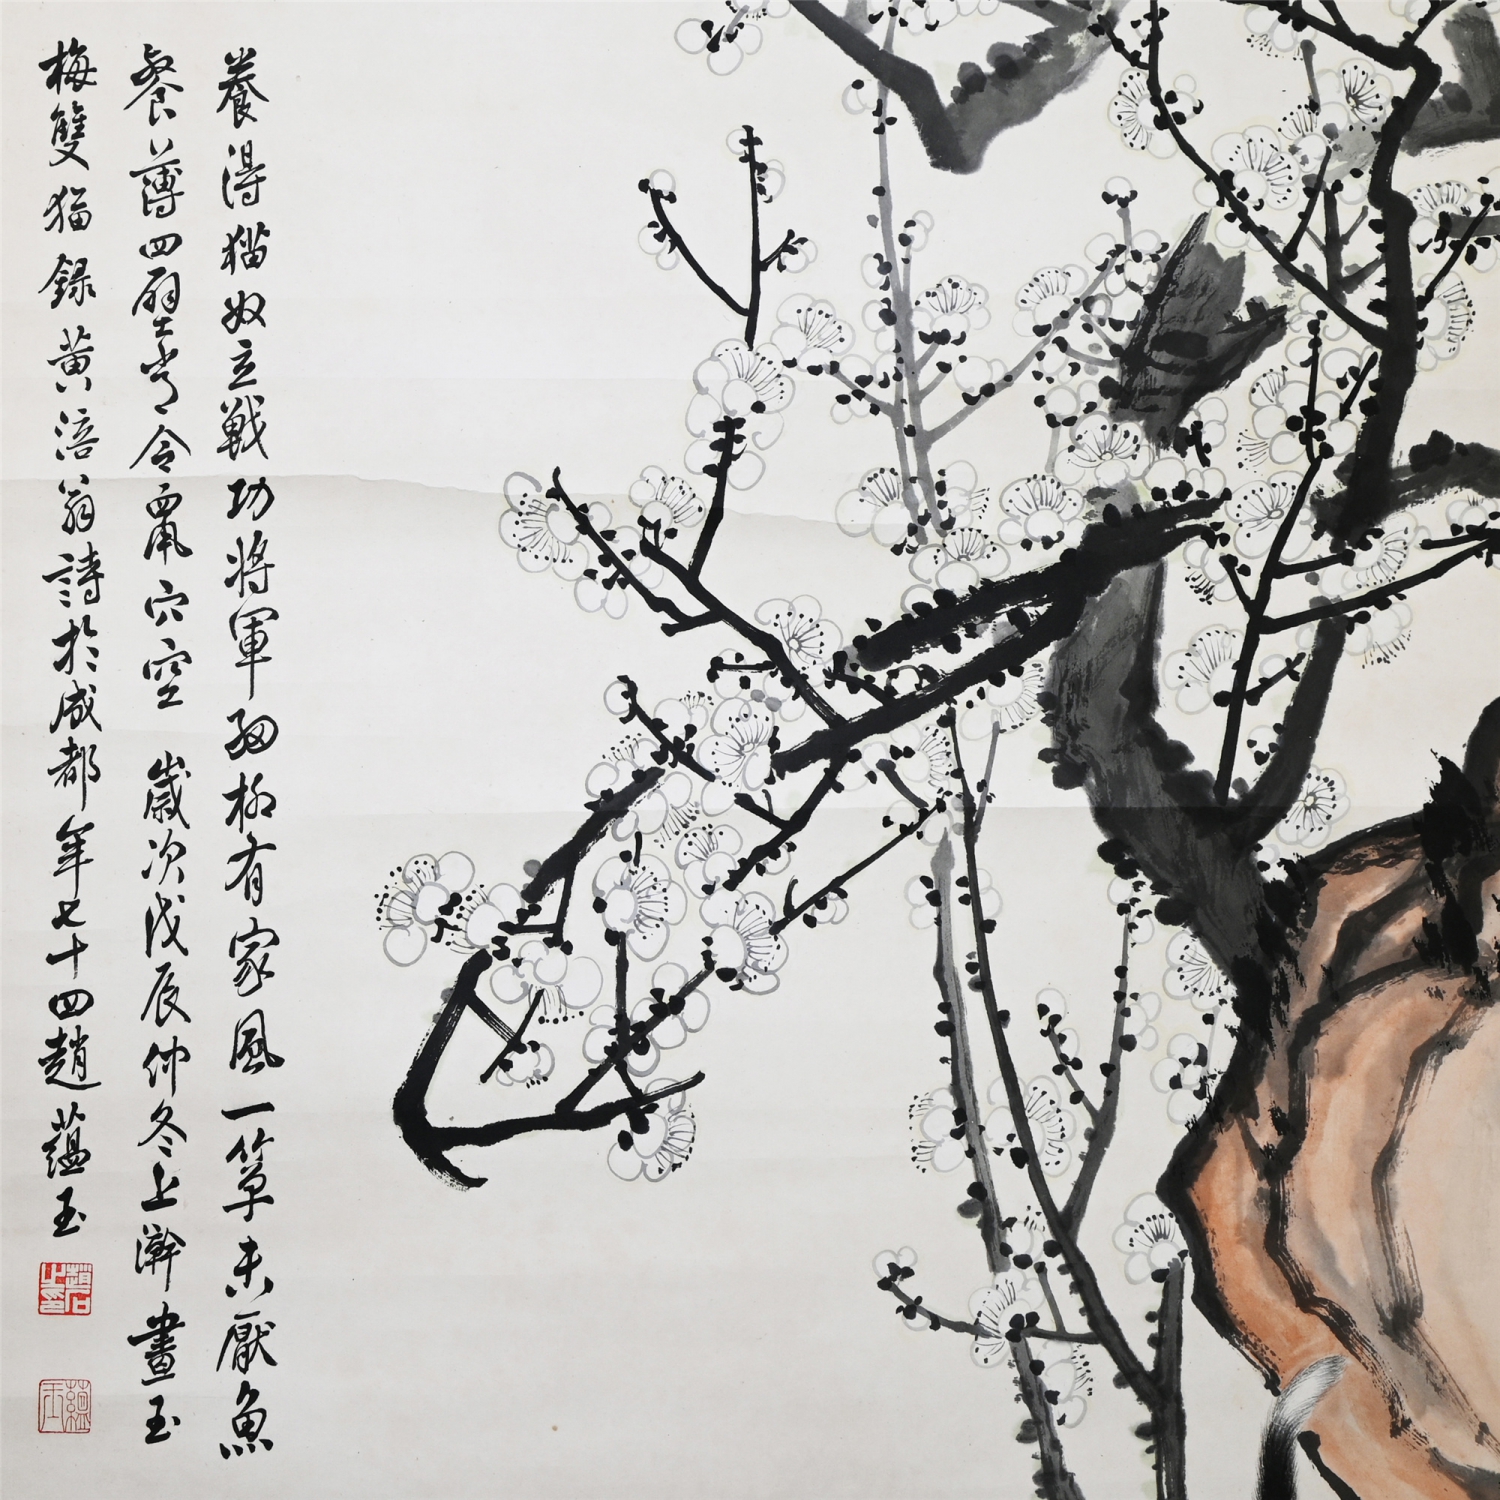 養得猫奴立戰功將軍細柳有家風一簞未厭魚
餐薄四壁當令鼠穴空 歲次戊辰仲冬上澣畫玉
梅雙猫錄黃涪翁詩於成都年七十四趙蘊玉
趙石之印
蘊玉